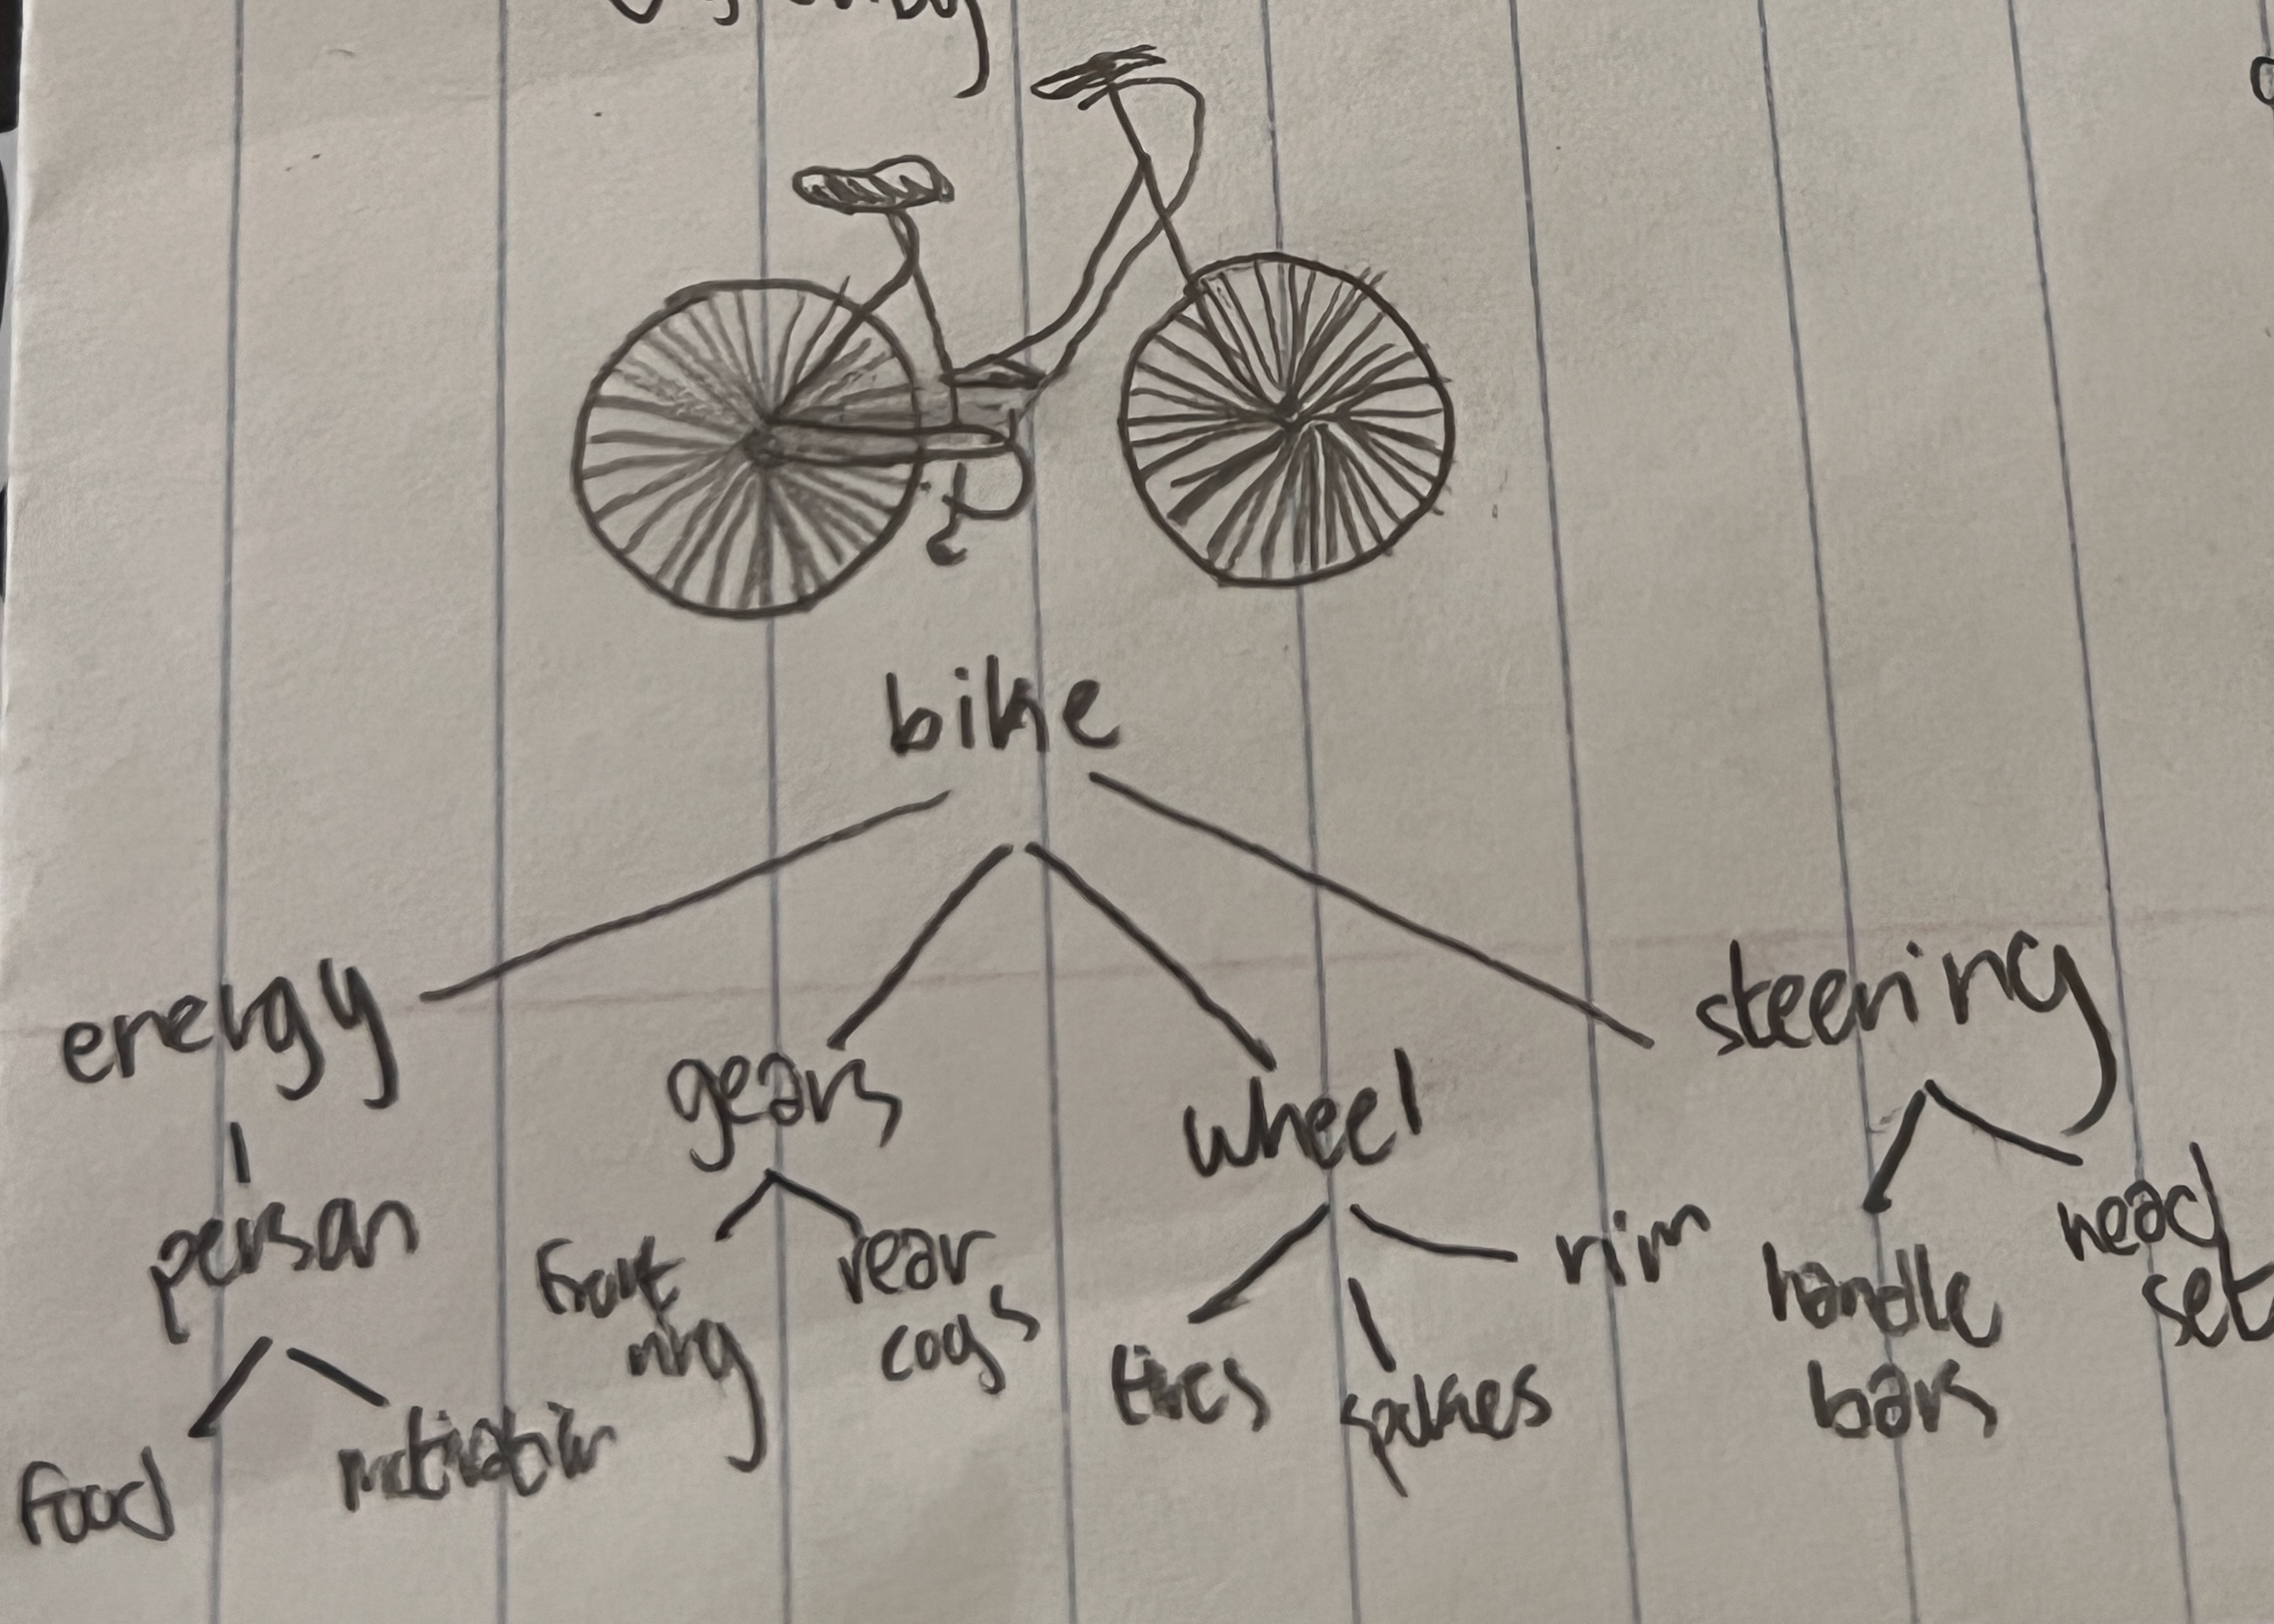 bike
energy
gears
wheel
steering
person
front
ring
rear
cogs
tires
spokes
rim
handle
bars
head
set
food
motivation